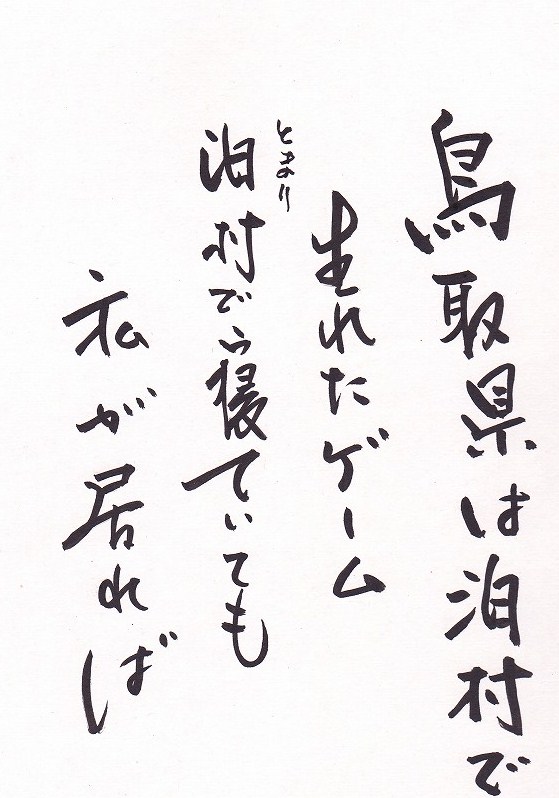 鳥取県は泊村で
生れたゲーム
とまり
泊村で寝ていても
私が居れば